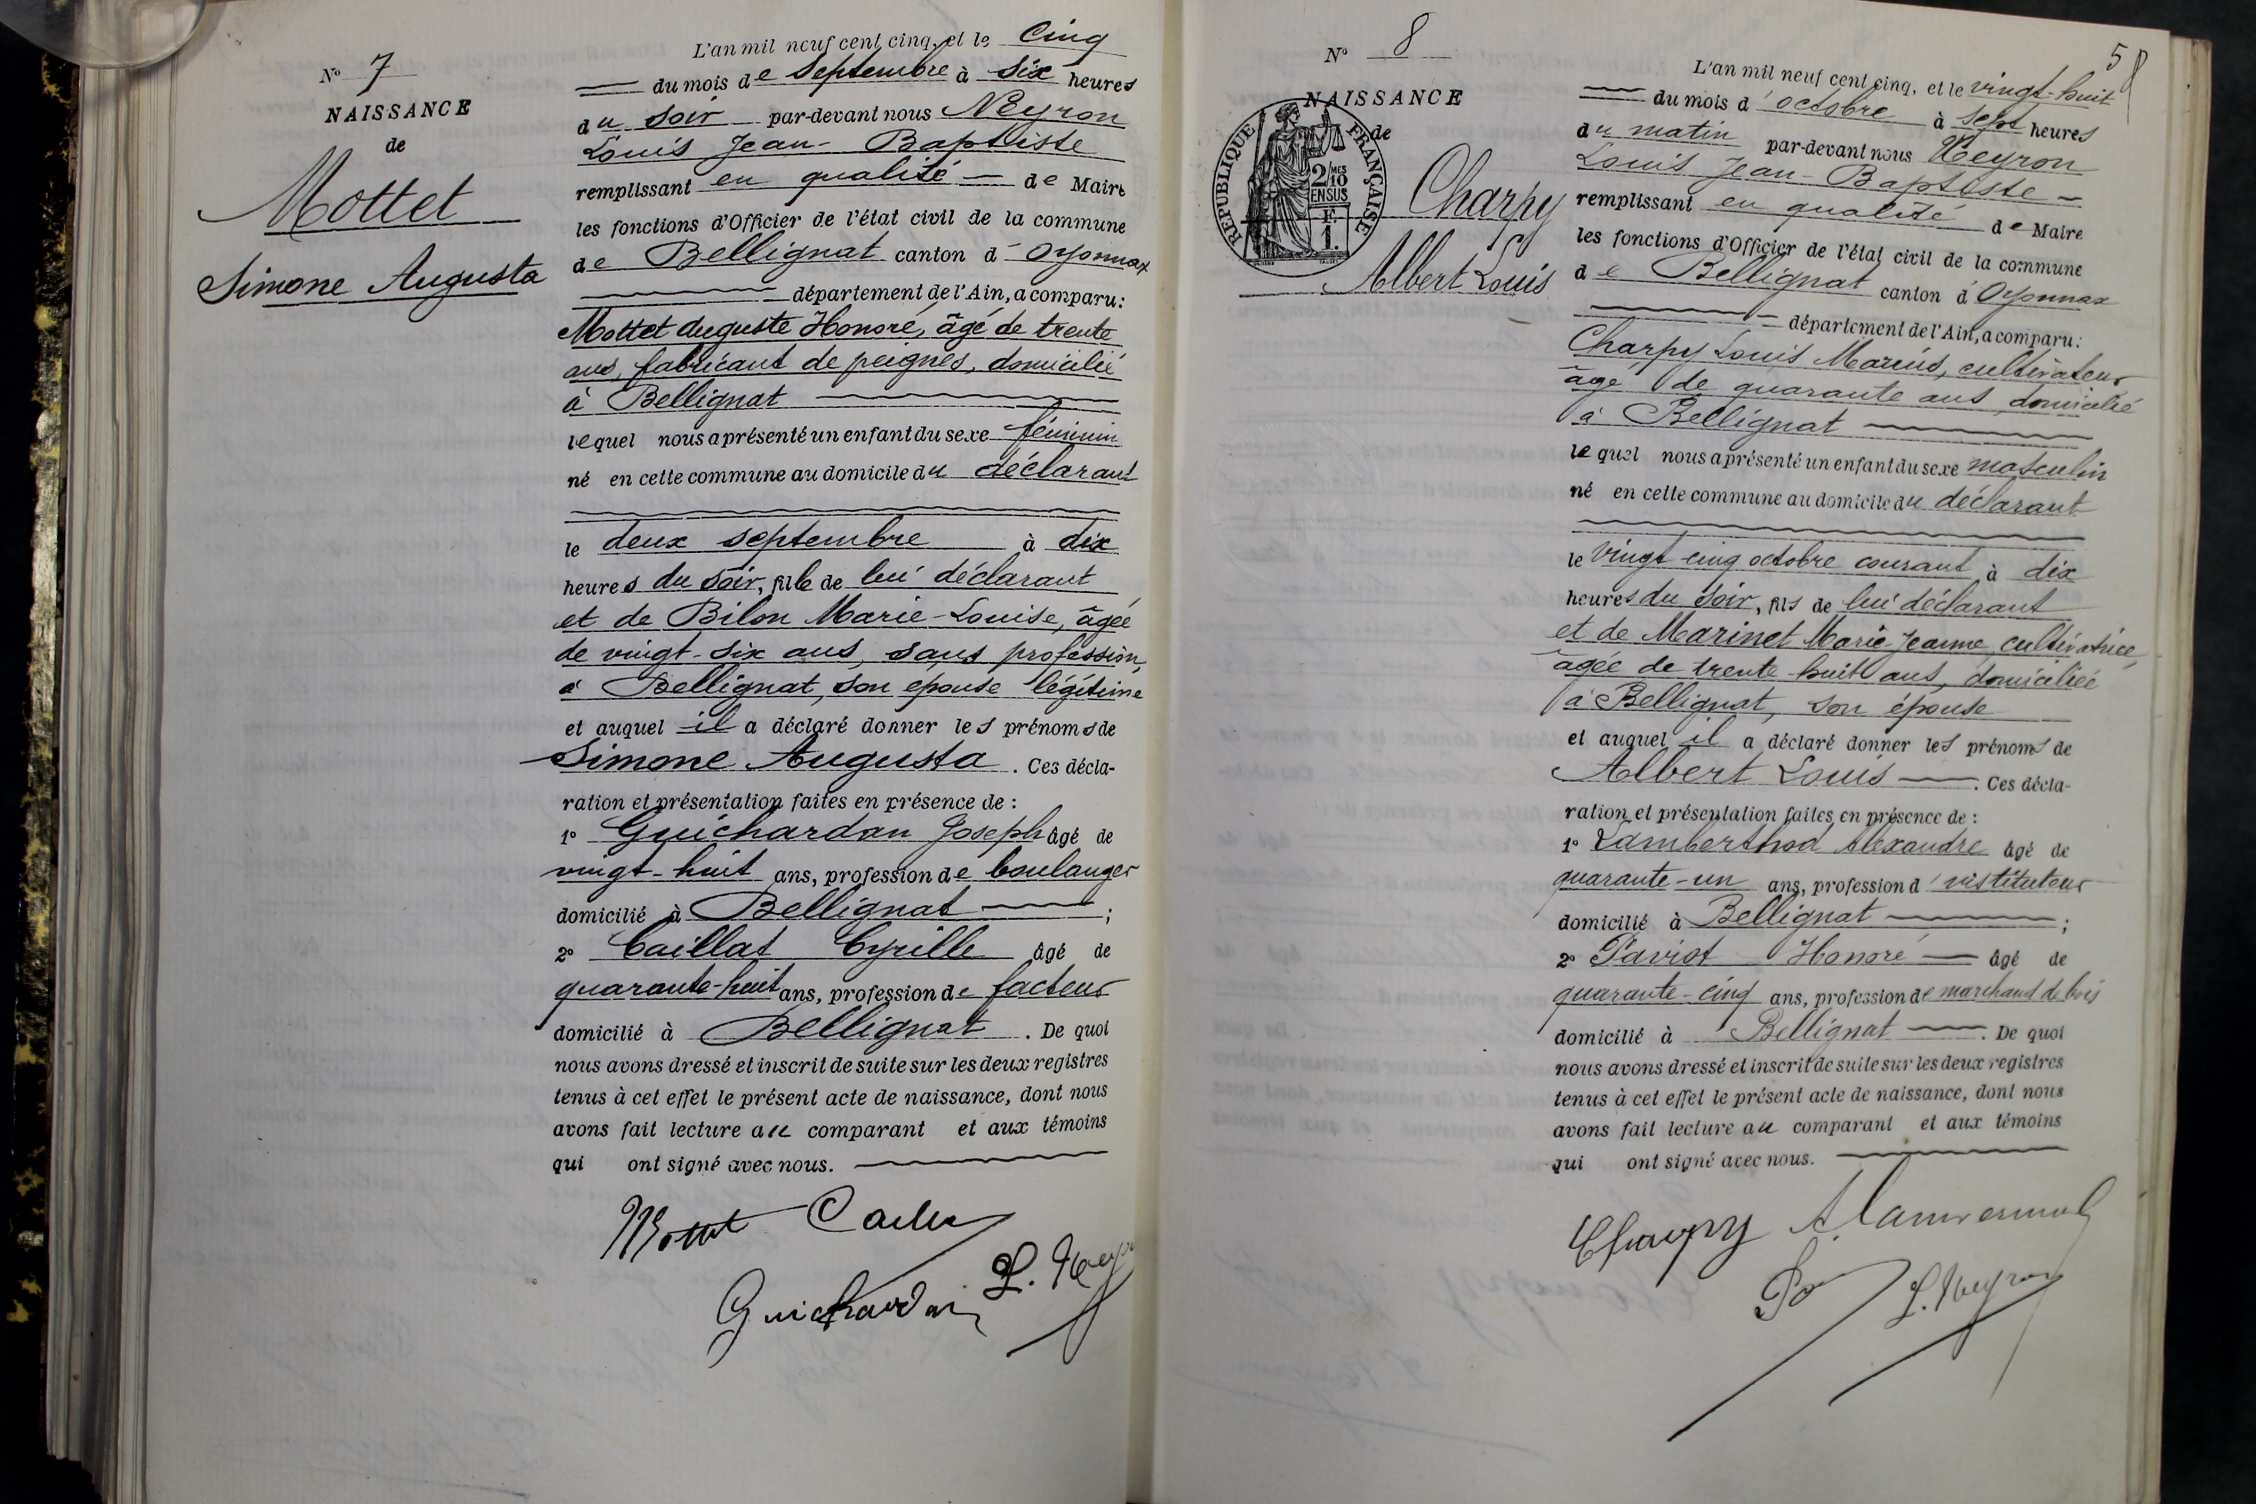 N° 7
NAISSANCE
de
Mottet
Simone Augusta
L'an mil neuf cent cinq, et le cinq
du mois de Septembre à six heures
du soir par-devant nous Neyron
Louis Jean-Baptiste
remplissant en qualité de Maire
les fonctions d'Officier de l'état civil de la commune
de Bellignat canton d'Oyonnax
département de l'Ain, a comparu:
Mottet Auguste Honoré, âgé de trente
ans, fabricant de peignes, domicilié
à Bellignat
lequel nous a présenté un enfant du sexe féminin
né en cette commune au domicile du déclarant
le deux septembre à dix
heures du soir, fille de lui déclarant
et de Bilon Marie-Louise, âgée
de vingt-six ans, sans profession,
à Bellignat, son épouse légitime
et auquel il a déclaré donner les prénoms de
Simone Augusta. Ces décla-
ration et présentation faites en présence de :
1° Guichardan Joseph âgé de
vingt-huit ans, profession de boulanger
domicilié à Bellignat ;
2° Caillat Cyrille âgé de
quarante-huit ans, profession de facteur
domicilié à Bellignat. De quoi
nous avons dressé et inscrit de suite sur les deux registres
tenus à cet effet le présent acte de naissance, dont nous
avons fait lecture au comparant et aux témoins
qui ont signé avec nous.
Mottet
Guichardan L. Ney
58
N° 8
NAISSANCE
de
RÉPUBLIQUE FRANÇAISE
2/10 MES
EN SUS
1 F.
Charpy
Albert Louis
L'an mil neuf cent cinq, et le vingt-huit
du mois d'octobre à sept heures
du matin par-devant nous Neyron
Louis Jean-Baptiste
remplissant en qualité de Maire
les fonctions d'Officier de l'état civil de la commune
de Bellignat canton d'Oyonnax
département de l'Ain, a comparu:
Charpy Louis Marius, cultivateur
âgé de quarante ans domicilié
à Bellignat
lequel nous a présenté un enfant du sexe masculin
né en cette commune au domicile du déclarant
le vingt cinq octobre courant à dix
heures du soir, fils de lui déclarant
et de Marinet Marie-Jeanne, cultivatrice,
âgée de trente-huit ans, domiciliée
à Bellignat, son épouse
et auquel il a déclaré donner les prénoms de
Albert Louis. Ces décla-
ration et présentation faites en présence de :
1° Lamberthod Alexandre âgé de
quarante-un ans, profession d'instituteur
domicilié à Bellignat ;
2° Paviot Honoré âgé de
quarante-cinq ans, profession de marchand de bois
domicilié à Bellignat. De quoi
nous avons dressé et inscrit de suite sur les deux registres
tenus à cet effet le présent acte de naissance, dont nous
avons fait lecture au comparant et aux témoins
qui ont signé avec nous.
Charpy
L. Neyron